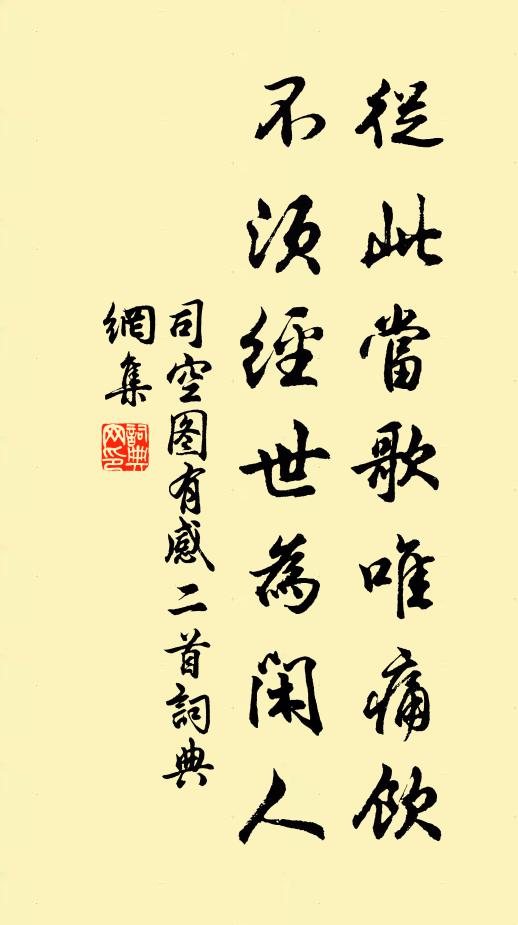 從此當歌唯痛飲
不須經世為閑人
司空图有感二首詞典
網集
詞典網印